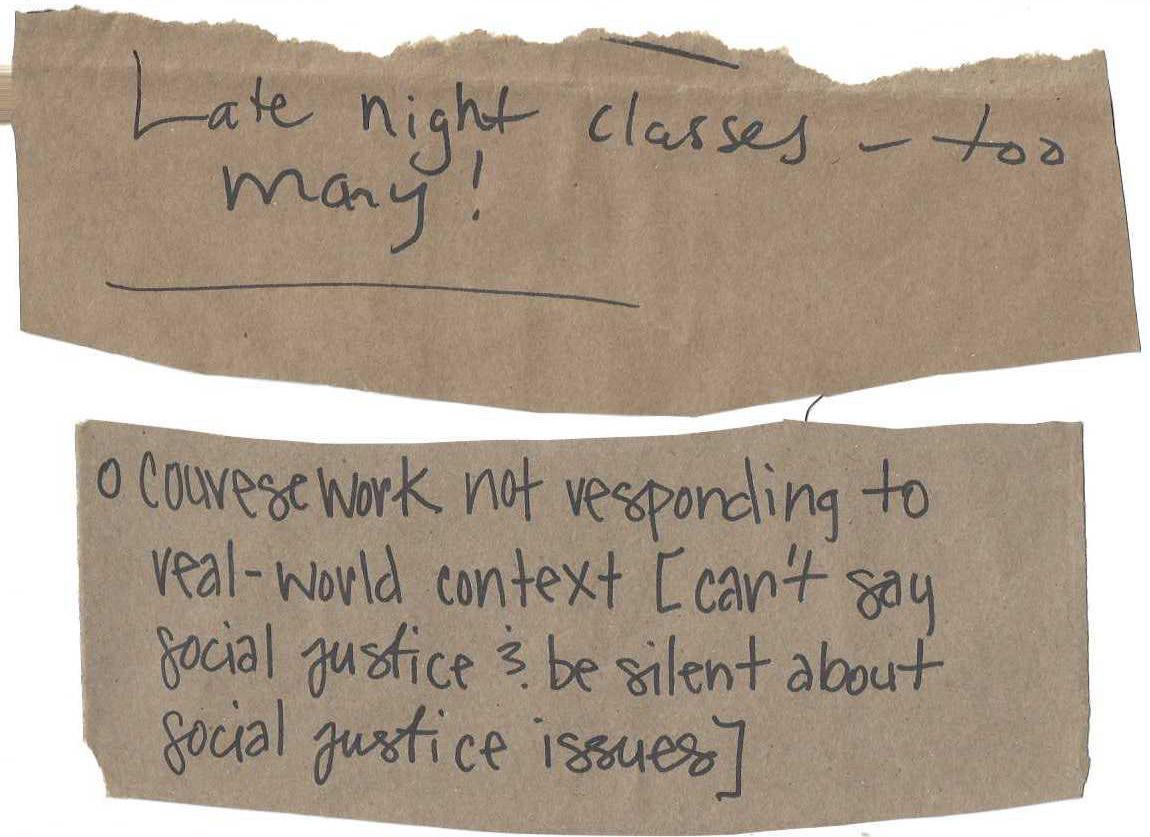 Late night classes – too
many!
o Couresework not responding to
real-world context [can't say
social justice & be silent about
social justice issues]